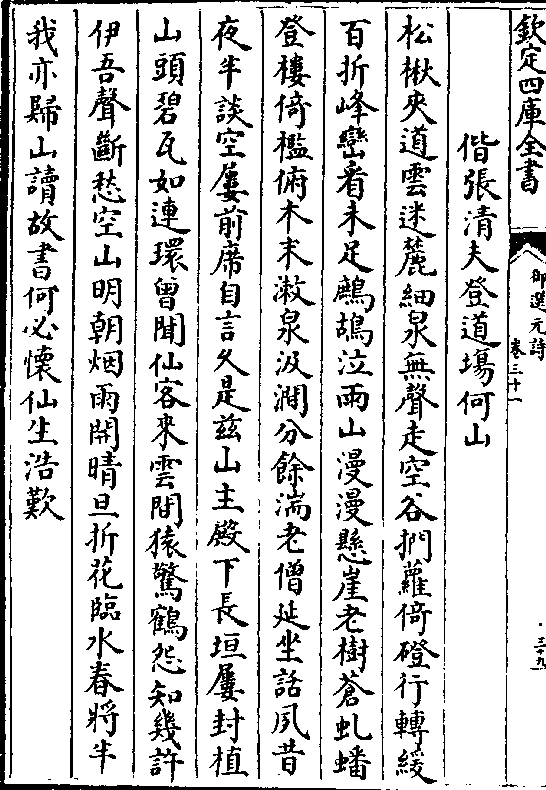 欽定四庫全書
御選元詩
卷三十一
三十九
偕張清夫登道場何山
松楸夾道雲迷麓細泉無聲走空谷捫蘿倚磴行轉緩
百折峰巒看未足鷓鴣泣雨山漫漫懸崖老樹蒼虬蟠
登樓倚檻俯木末漱泉汲澗分餘湍老僧延坐話夙昔
夜半談空屢前席自言久是兹山主殿下長垣屢封植
山頭碧瓦如連環曾聞仙客來雲間猿驚鶴怨知幾許
伊吾聲斷愁空山明朝烟雨開晴旦折花臨水春將半
我亦歸山讀故書何必懷仙生浩歎